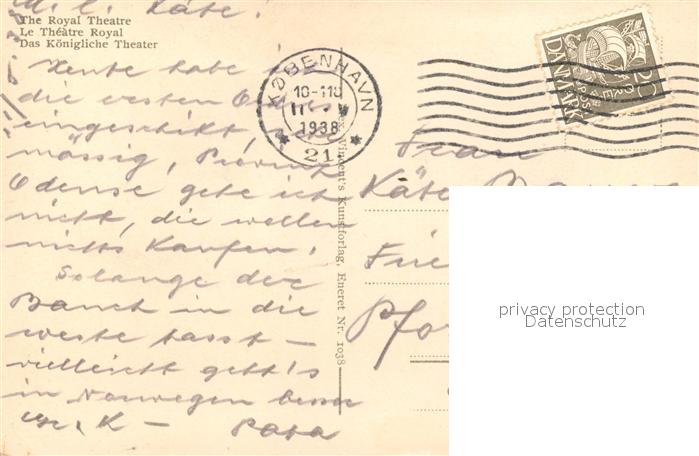 M. l. Käte!
The Royal Theatre
Le Théâtre Royal
Das Königliche Theater
Heute habe ich
die ersten
eingeschikt
mässig, Provinz
Odense gehe ich
nicht, die wollen
nichts Kaufen!
Solange der
Bauch in die
weste passt —
vielleicht geht's
in Norwegen besser
K — Papa
KØBENHAVN
1938
21
Vincent's Kunstforlag, Eneret Nr. 1038
DANMARK
Frau
Käte
Pfor
privacy protection
Datenschutz